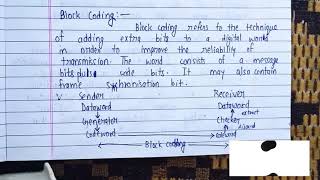 Block Coding:-
Block coding refers to the technique
of adding extra bits to a digital word
in order to improve the reliability of
transmission. The word consists of a message
bits plus code bits. It may also contain
frame Synchronisation bit.
Sender Receiver
Dataword Dataword
extract
Generator Checker
discard
Codeword Codeword
Block coding